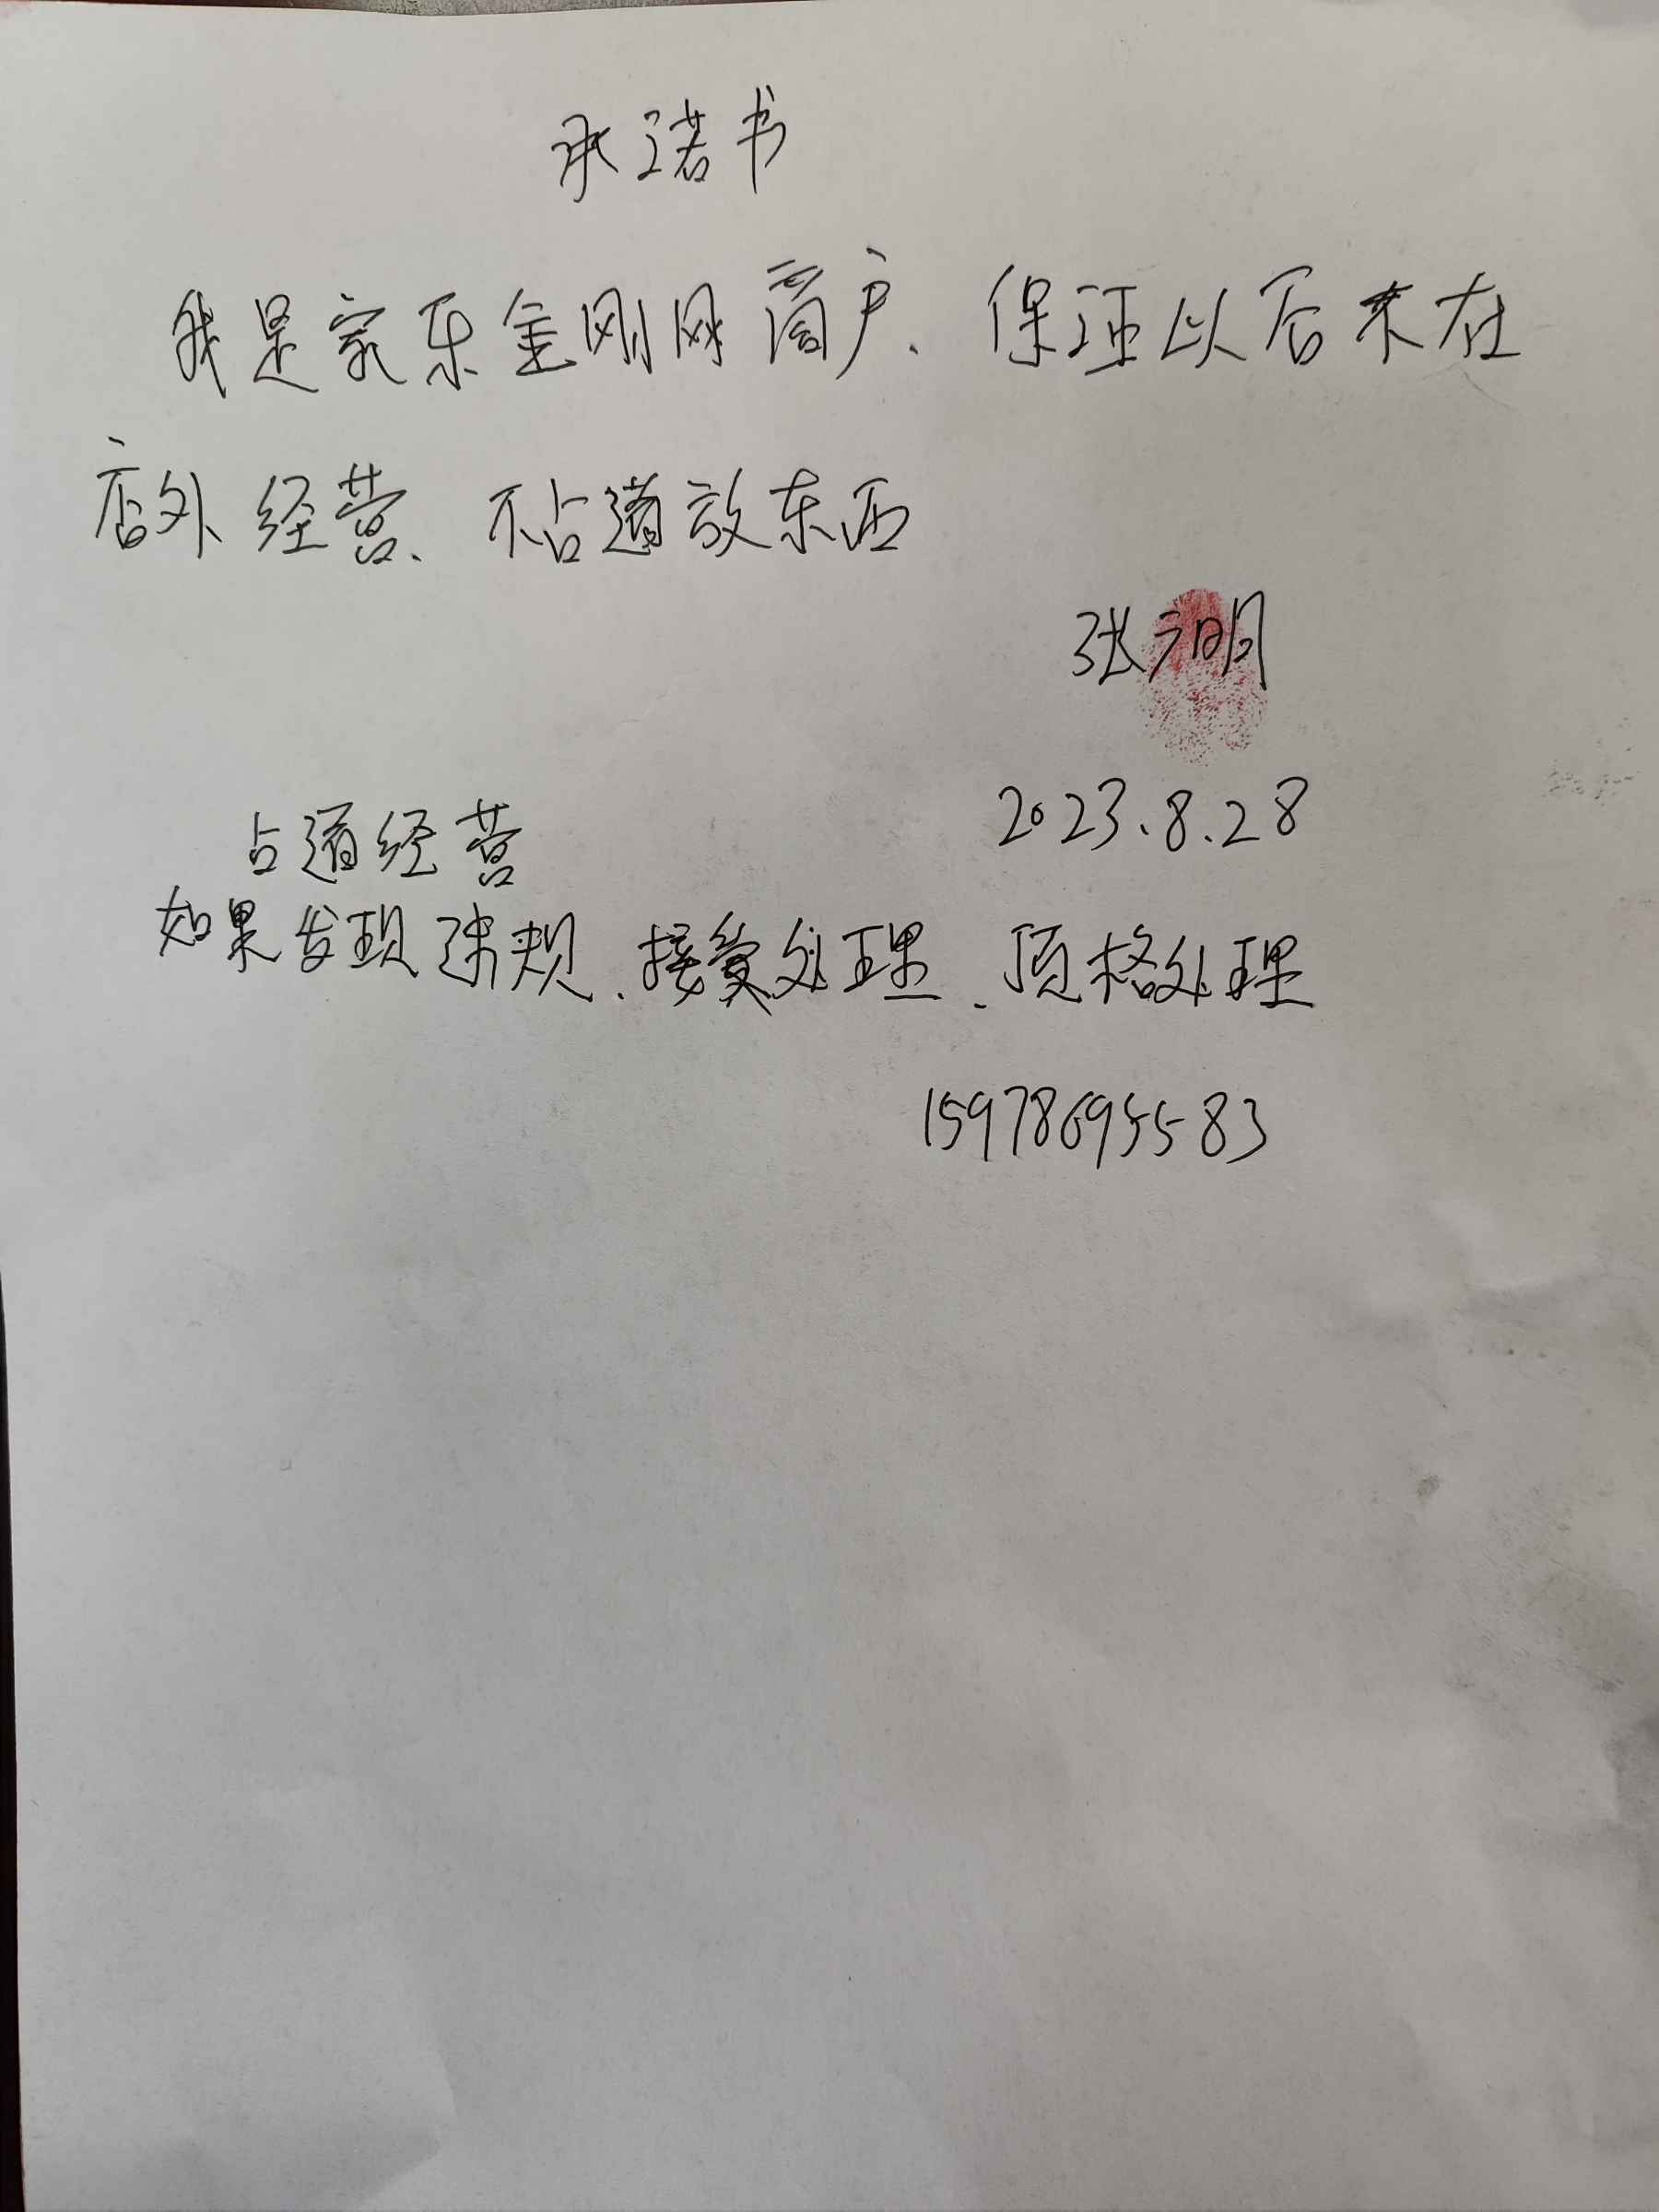 承诺书
我是家乐金刚网商户、保证以后不在
店外经营、不占道放东西
张广明
2023.8.28
占道经营
如果发现违规、接受处理、顶格处理
15978695583